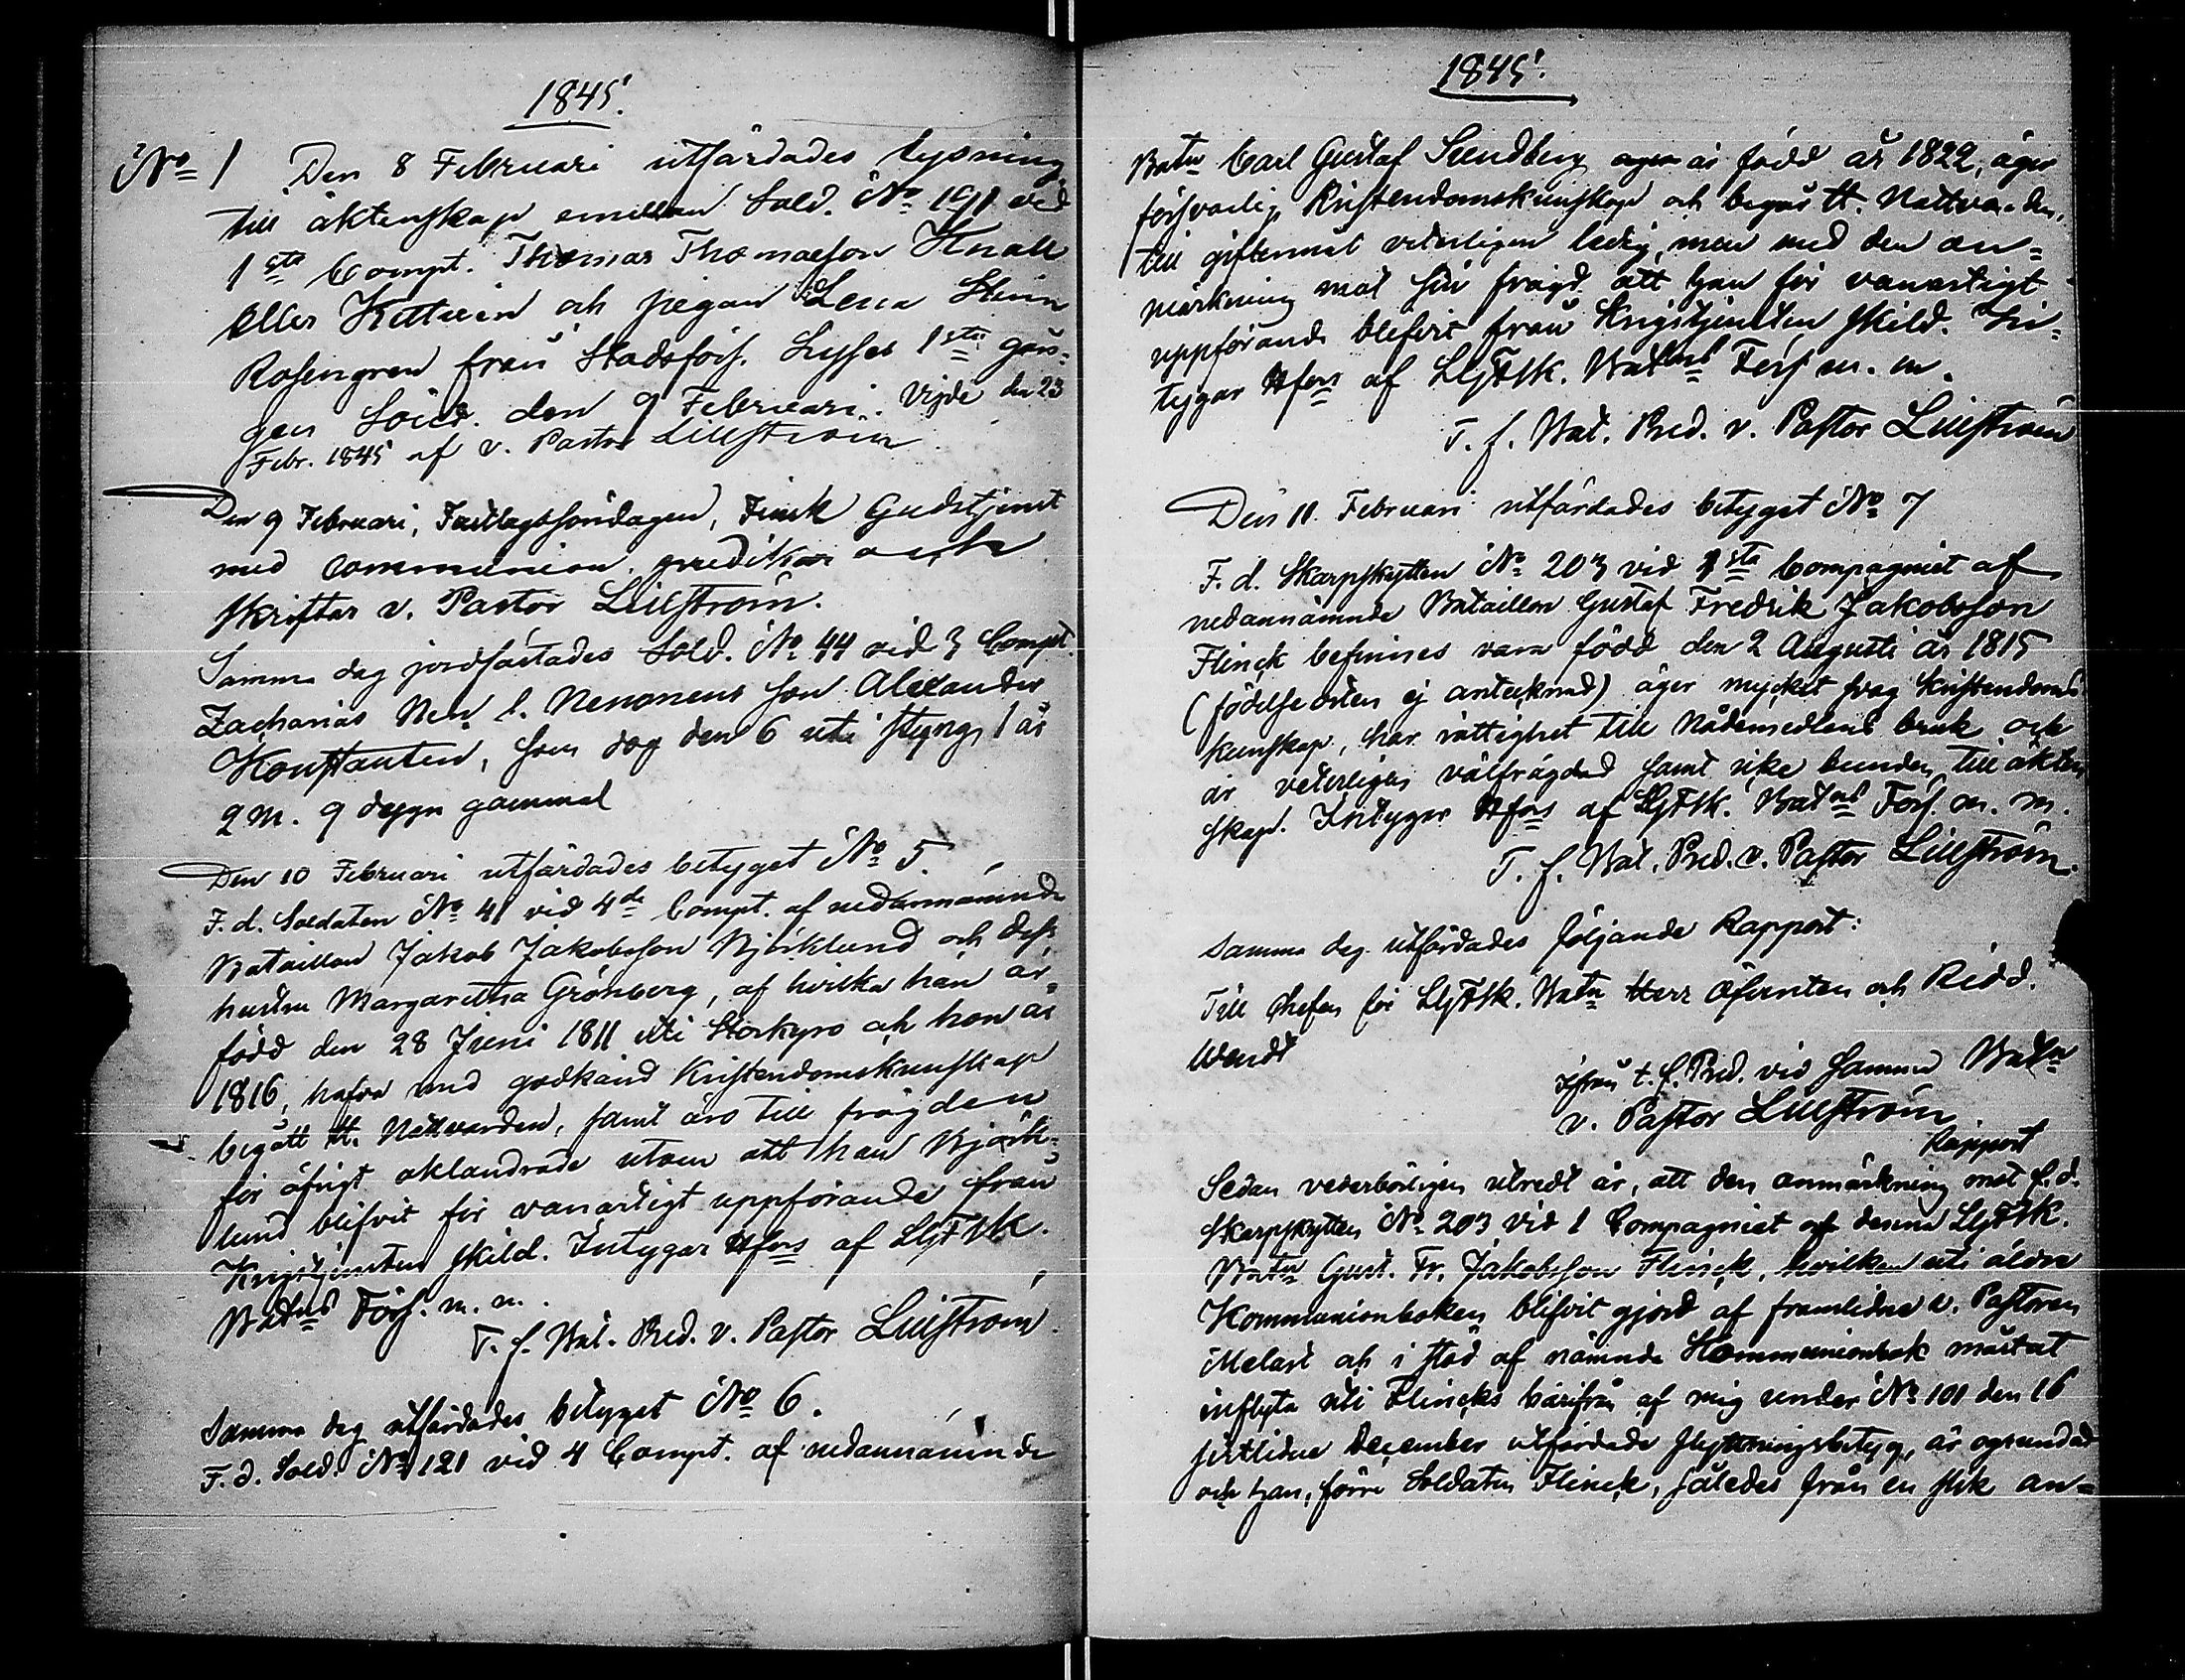 1845.
No 1 Den 8 Februari utfärdades lysning
till äktenskap emellan Sold. No 191 vid
1sta Compt. Thomas Thomasson Knall
eller Kettuin och pigan Lena Stina
Rosengren från Stadsförs. Lystes 1sta gån-
gen Sönd. den 9 Februari. Vigde den 23
Febr. 1845 af v. Pastor Lillström
Den 9 Februari, Fastlagssöndagen, Finsk Gudstjenst
med communion. predikar och
skriftar v. Pastor Lillström.
Samma dag jordfästades Sold. No 44 vid 3 Compt.
Zacharias Nen l. Nenonens son Alexander
Konstantin, som dog den 6 uti styng, 1 år
2 m. 9 dygn gammal
Den 10 Februari utfärdades betyget No 5.
F. d. Soldaten No 41 vid 4de Compt. af nedannämnde
Bataillon Jakob Jakobsson Björklund och dess
hustru Margaretha Grönberg, af hvilka han är
född den 28 Juni 1811 uti Storkyro och hon år
1816, hafva med godkänd Kristendomskunskap
begått H. Nattvarden, samt äro till frägden
för öfrigt oklandrade utom att han Björk-
lund blifvit för vanartigt uppförande från
Krigstjensten skild. Intygar Hfors af LGFSk.
Batns Förs. m. m.
T. f. Bat. Pred. v. Pastor Lillström.
Samma dag utfärdades betyget No 6.
F. d. Sold. No 121 vid 4 Compt. af nedannämnde
1845.
Batn Carl Gustaf Sundberg är född år 1822, äger
försvarlig Kristendomskunskap och begår H. Nattvarden,
till giftermål veterligen ledig, men med den an-
märkning mot sin frägd att han för vanartigt
uppförande blifvit från Krigstjensten skild. In-
tygar Hfors af LGFSk. Batns Förs m. m.
T. f. Bat. Pred. v. Pastor Lillström
Den 11. Februari utfärdades betyget No 7
F. d. Skarpskytten No 203 vid 1sta Compagniet af
nedannämnde Bataillon Gustaf Fredrik Jakobsson
Flinck befinnes vara född den 2 Augusti år 1815
(födelseorten ej antecknad) äger mycket svag Kristendoms
kunskap, har rättighet till Nådemedlens bruk och
är veterligen välfrägdad samt icke bunden till äkten
skap. Intygar Hfors af LGFSk. Batns Förs. m. m.
T. f. Bat. Pred. v. Pastor Lillström.
Samma dag utfärdades följande Rapport:
Till Chefen för LGFSk. Batn Herr Öfversten och Ridd.
Wendt
ifrån t. f. Pred. vid samma Batn
v. Pastor Lillström
Rapport
Sedan vederbörligen utredt är, att den anmärkning mot f. d.
Skarpskytten No 203 vid 1 Compagniet af denna LGFSk.
Batn Gust. Fr. Jakobsson Flinck, hvilken uti äldre
Kommunionboken blifvit gjord af framlidne v. Pastoren
Melart och i stöd af nämnde Kommunionbok måstat
inflyta uti Flincks härifrån af mig under No 101 den 16
sistlidne December utfärdade flyttningsbetyg, är ogrundad
och han, förre Soldaten Flinck, således från en slik an-